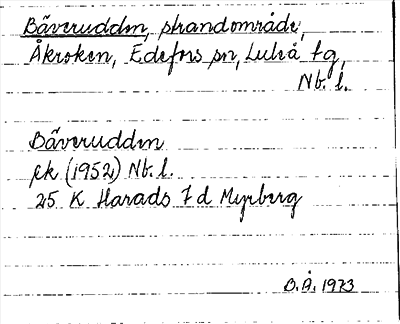 Bäverudden, strandområde,
Åkroken, Edefors sn, Luleå tg,
Nb. l.
Bäverudden
ek (1952) Nb. l.
25 K Harads 7 d Myrberg
O.Å. 1973